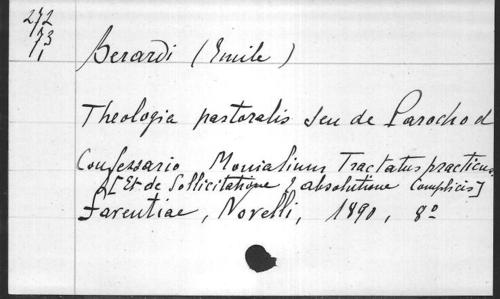 272
73
1
Berardi (Emile)
Theologia pastoralis seu de Parocho d
Confessario Monialium Tractatus practicus
[Et de Sollicitatione & absolutione Complicis]
Faventiae, Novelli, 1890, 8º